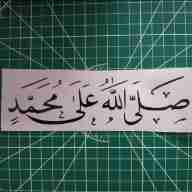 صَلَّىٰ اللّٰهُ عَلَىٰ مُحَمَّدٍ